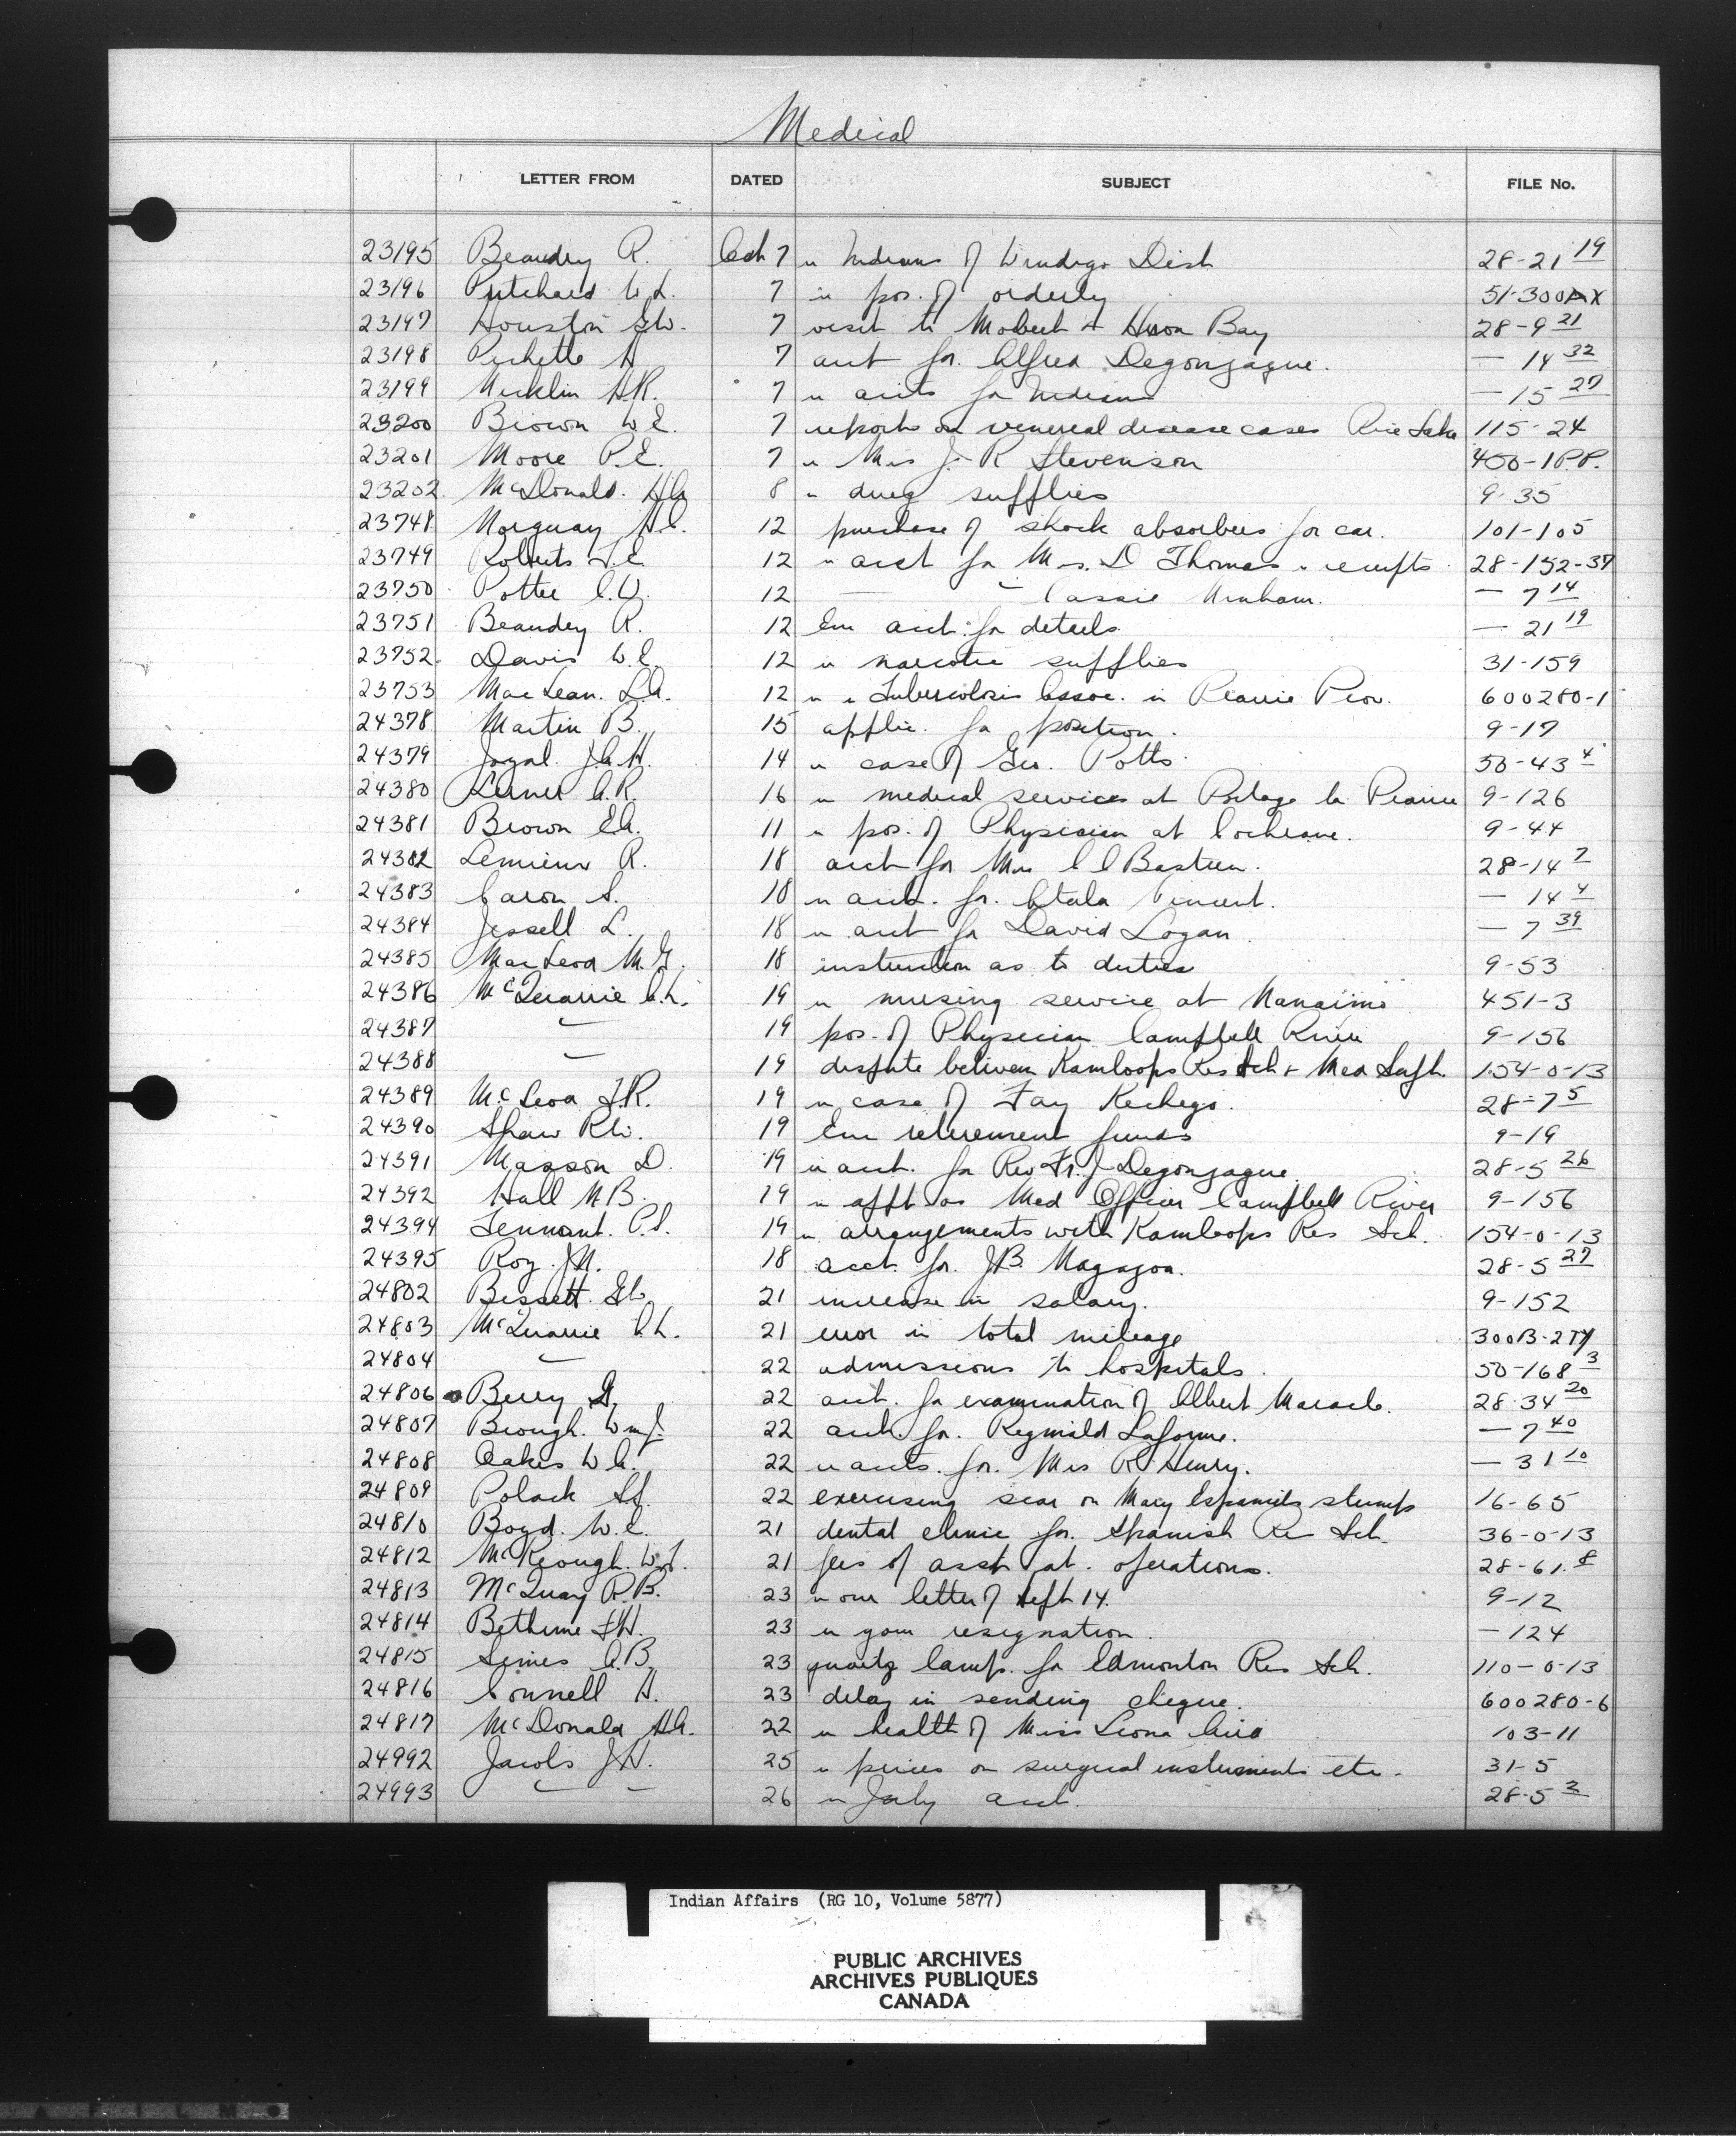 Medical
LETTER FROM DATED SUBJECT FILE No.
23195 Beaudry R. Oct 7 re Indians of Windigo Dist 28-21 19
23196 Pritchard W.L. 7 re pos. of orderly 51-300AX
23197 Houston G.W. 7 visit to Mobert & Heron Bay 28-9 21
23198 Pichette A 7 acct for. Alfred Degonzague. — 14 32
23199 H.R. 7 re accts for Indians — 15 27
23200 Brown W.E. 7 reports on venereal disease cases Rice Lake 115-24
23201 Moore P.E. 7 re Mrs J. R Stevenson 400-1 P.P.
23202 McDonald. H.A 8 re drug supplies 9-35
23748 Norquay H.C. 12 purchase of shock absorbers for car. 101-105
23749 Roberts F.E 12 re acct for Mrs. D Thomas re receipts 28-152-37
23750 Potter C.W. 12 — Cassie — 7 14
23751 Beaudry R. 12 Enc acct. for details — 21 19
23752. Davis W.E. 12 re narcotic supplies 31-159
23753 MacLean. L.A. 12 re Tuberculosis Assoc. in Prairie Prov. 600280-1
24378 Martin B. 15 applic. for position. 9-17
24379 Joyal J.A.H. 14 re case of Geo. Potts 50-43 4
24380 Lerner A.R. 16 re medical services at Portage la Prairie 9-126
24381 Brown E.A. 11 re pos. of Physician at Cochrane. 9-44
24382 Lemieux R. 18 acct for Mrs C C Bastien. 28-14 7
24383 Caron S. 18 re acct. for. Atala Vincent. — 14 4
24384 Jessell L. 18 re acct for David Logan — 7 39
24385 MacLeod M.G. 18 instruction as to duties 9-53
24386 McQuarrie A.h. 19 re nursing service at Nanaimo 451-3
24387 — 19 pos. of Physician Campbell River 9-156
24388 — 19 dispute between Kamloops Res Sch & Med Supt. 154-0-13
24389 McLeod F.R. 19 re case of Fay Kechego. 28-7 5
24390 Shaw R.W. 19 Enc retirement funds 9-19
24391 Masson D. 19 re acct. for Rev Fr. J Degonzague 28-5 26
24392 Hall N B. 19 re appt as Med Officer Campbell River 9-156
24394 Tennant. P.S. 19 re arrangements with Kamloops Res Sch. 154-0-13
24395 Roy J.N. 18 acct. for. J B. 28-5 27
24802 Bissett. G.C. 21 increase in salary. 9-152
24803 McQuarrie A.h. 21 error in total mileage 300B-2TY
24804 — 22 admissions to hospitals. 50-168 3
24806 Berry G. 22 acct. for examination of Albert Maracle. 28-34 20
24807 Brough. Wm J. 22 acct. for. Reginald Laforme. — 7 40
24808 Oakes W A. 22 re accts. for. Mrs R. Henry. — 31 10
24809 Polack S.J. 22 excising scar on Mary Espaniels stumps 16-65
24810 Boyd. W.E. 21 dental clinic for. Spanish Res Sch. 36-0-13
24812 McKeough W.T. 21 fees of asst at. operations. 28-61. 8
24813 McQuay R.B. 23 re our letter of Sept 14. 9-12
24814 Bethune F.H. 23 re your resignation. — 124
24815 Simes A.B. 23 quartz lamp. for Edmonton Res Sch. 110-0-13
24816 Connell H. 23 delay in sending cheque. 600280-6
24817 McDonald H.A. 22 re health of Miss Leona 103-11
24992 Jacobs J.H. 25 re prices on surgical instruments etc. 31-5
24993 — — 26 re July acct. 28-5 2
Indian Affairs (RG 10, Volume 5877)
PUBLIC ARCHIVES
ARCHIVES PUBLIQUES
CANADA